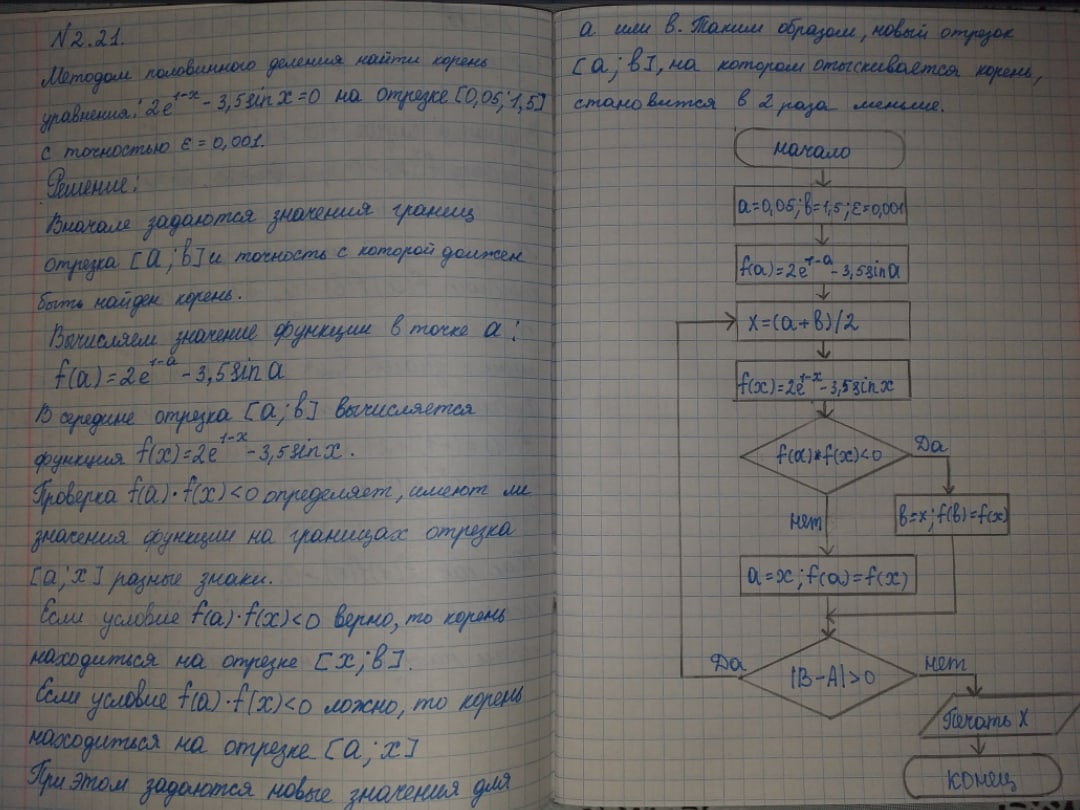 N2.21.
Методом половинного деления найти корень
уравнения: 2e^1-x - 3,5sinx=0 на отрезке [0,05;1,5]
с точностью ε=0,001.
Решение:
Вначале задаются значения границ
отрезка [a;b] и точность с которой должен
быть найден корень.
Вычисляем значение функции в точке a:
f(a)=2e^1-a - 3,5sina
В середине отрезка [a;b] вычисляется
функция f(x)=2e^1-x - 3,5sinx.
Проверка f(a)·f(x)<0 определяет, имеют ли
значения функции на границах отрезка
[a;x] разные знаки.
Если условие f(a)·f(x)<0 верно, то корень
находиться на отрезке [x;b].
Если условие f(a)·f(x)<0 ложно, то корень
находиться на отрезке [a;x]
При этом задаются новые значения для
a или b. Таким образом, новый отрезок
[a;b], на котором отыскивается корень,
становится в 2 раза меньше.
начало
a=0,05;b=1,5;ε=0,001
f(a)=2e^1-a - 3,5sina
x=(a+b)/2
f(x)=2e^1-x - 3,5sinx
f(a)*f(x)<0
Да
b=x;f(b)=f(x)
нет
a=x;f(a)=f(x)
Да
|B-A|>0
нет
Печать X
конец